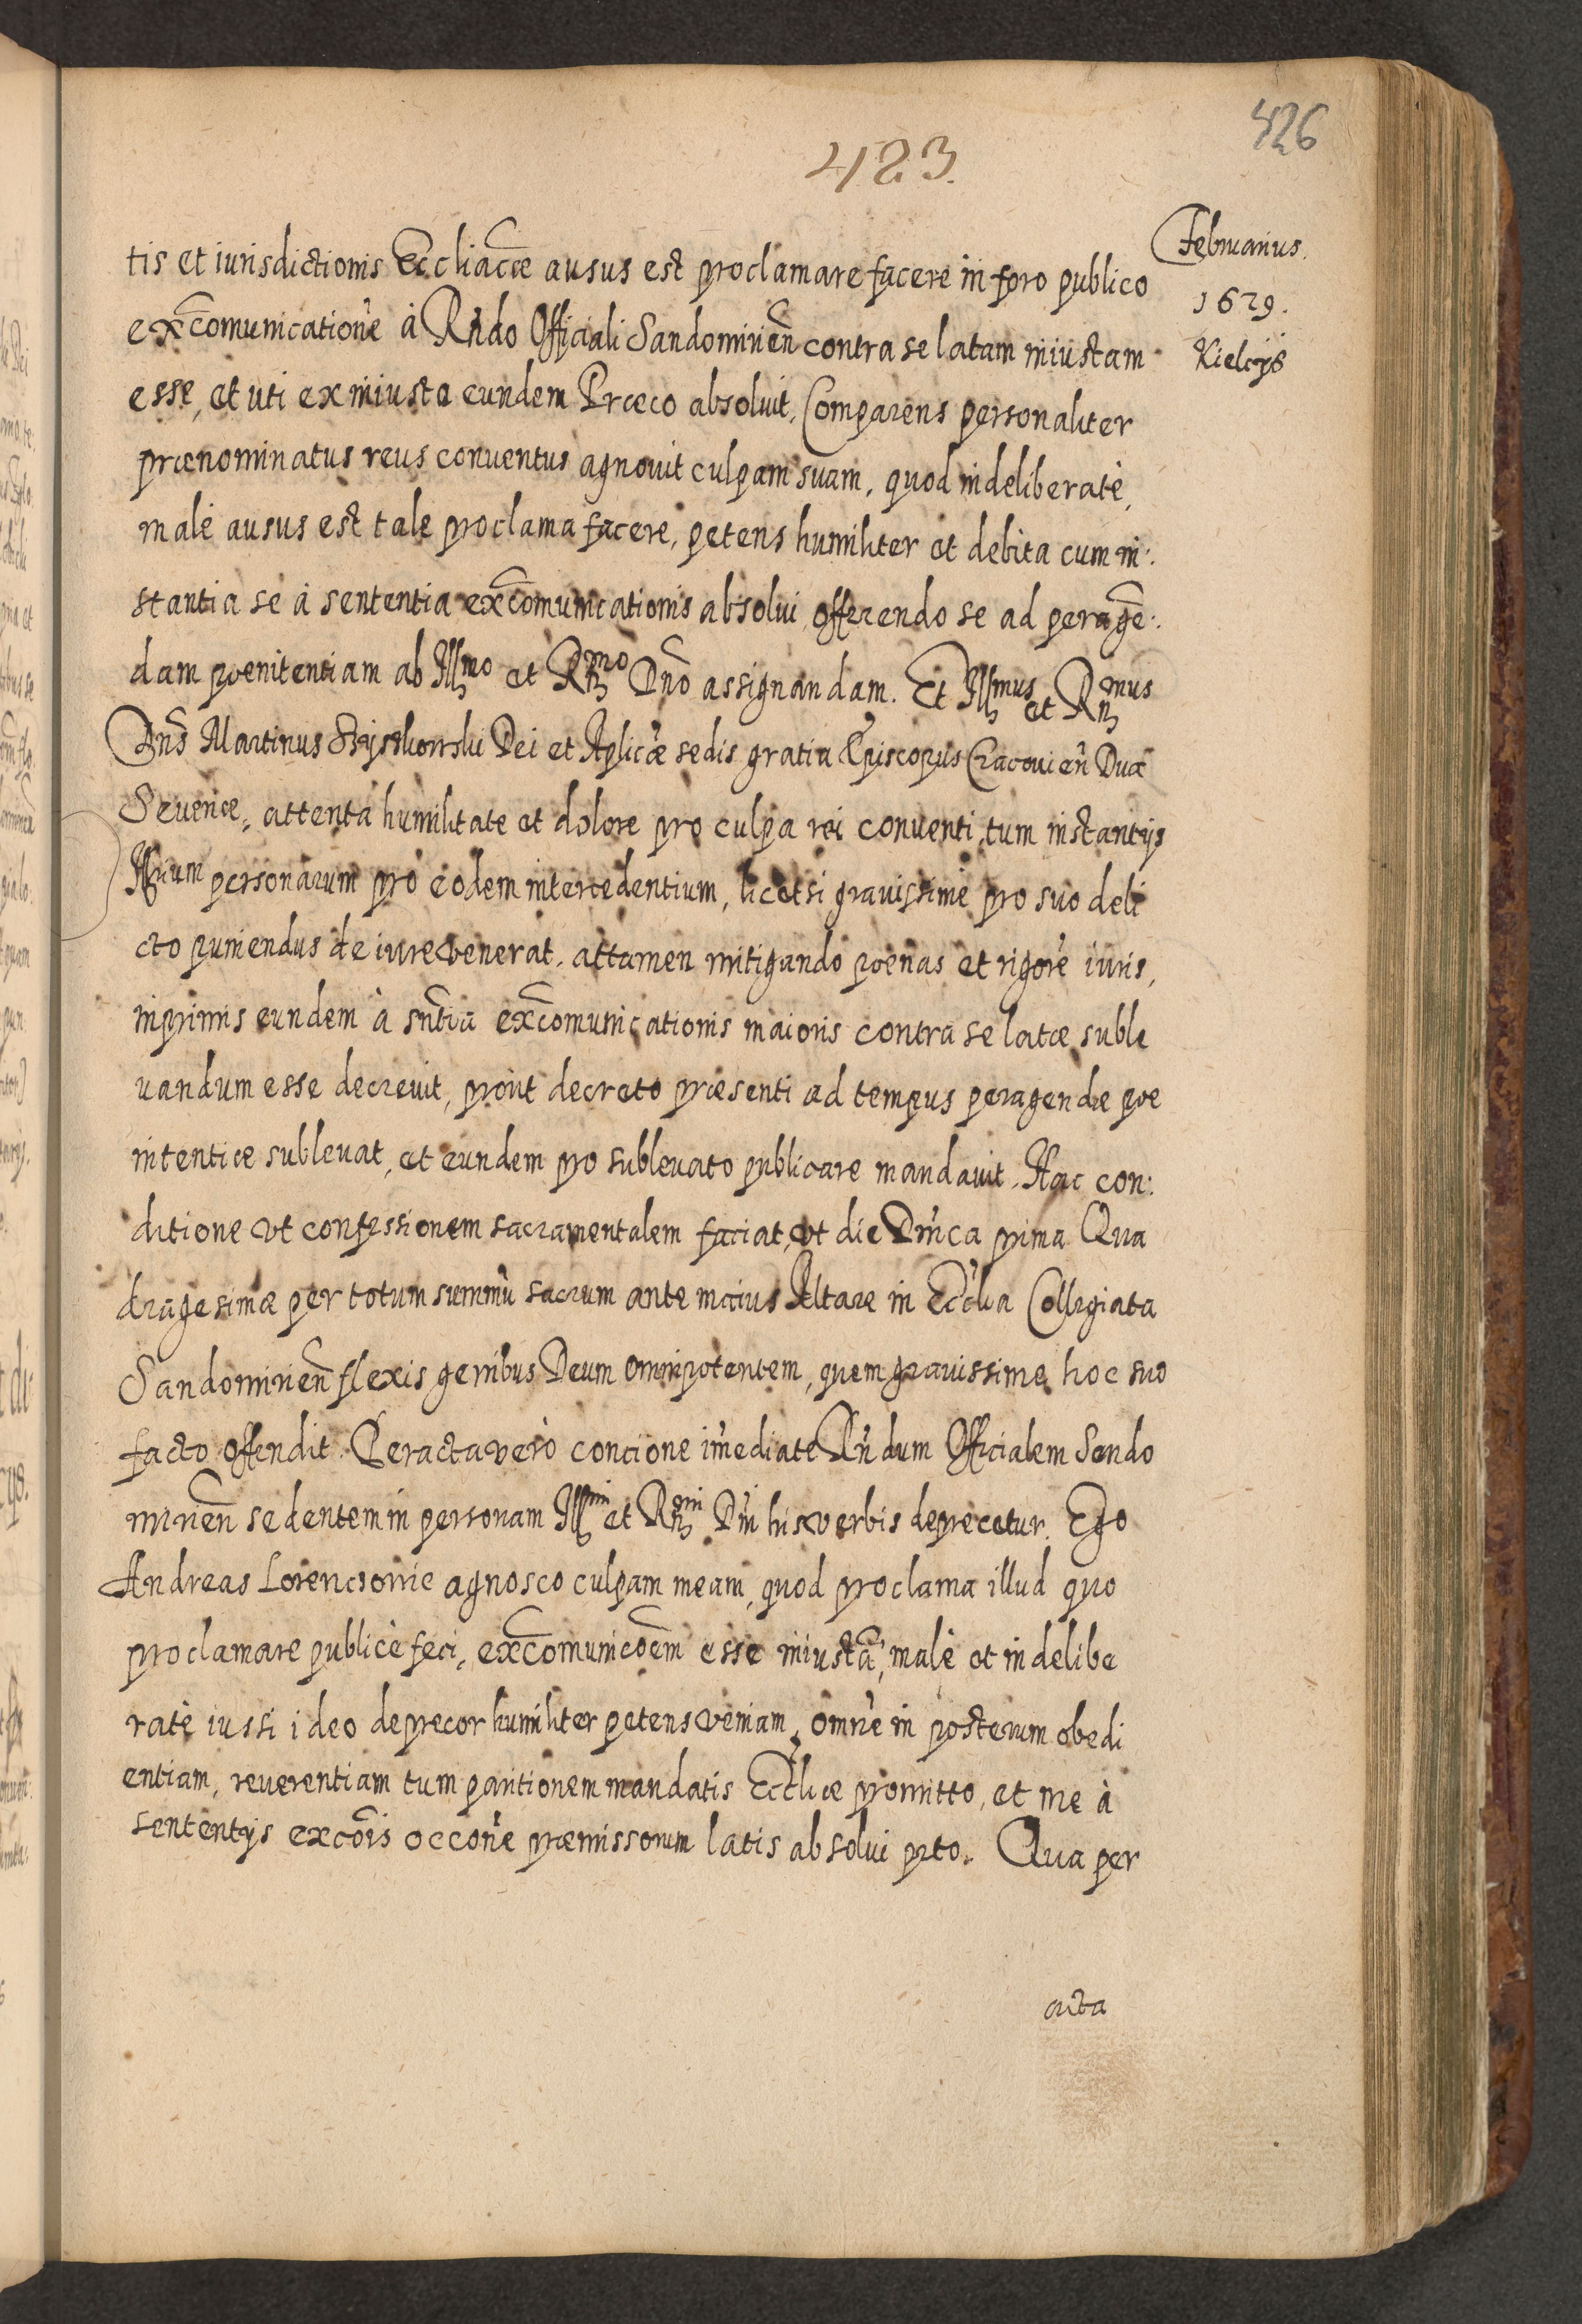 426
423.
Februarius.
1629.
Kielcijs
tis et iurisdictionis Eccliacæ ausus est proclamare facere in foro publico
excomunicatione à Rndo Officiali Sandomirien contra se latam iniustam
esse, et uti ex iniusta eundem Præco absoluit. Comparens personaliter
prænominatus reus conventus agnouit culpam suam, quod indeliberatè,
malè ausus est tale proclama facere, petens humiliter et debita cum in:
stantia se à sententia excomunicationis absolui, offerendo se ad peragē:
dam pœnitentiam ab Illmo et Rmo Dno assignandam. Et Illmus et Rmus
Dns Martinus Szyszkowski Dei et Aplicæ sedis gratia Episcopus Cracouien Dux
Seueriæ, attenta humilitate et dolore pro culpa rei conventi, tum instantijs
personarum pro eodem intercedentium, licet si grauissime pro suo deli
cto puniendus de iure venerat, attamen mitigando pœnas et rigorē iuris,
inprimis eundem à sntia excomunicationis maioris contra se latæ suble
uandum esse decreuit, prout decreto præsenti ad tempus peragendæ pœ
nitentiæ subleuat, et eundem pro subleuato publicare mandauit. Hac con:
ditione vt confessionem sacramentalem faciat, vt die Dnica prima Qua
dragesimæ per totum summū sacrum ante maius Altare in Ecclia Collegiata
Sandomirien flexis genibus Deum omnipotentem, quem grauissime hoc suo
facto offendit. Peracta verò concione imediate Rndum Officialem Sando
mirien sedentem in personam Illmi et Rmi Dni his verbis deprecetur. Ego
Andreas Lorencowic agnosco culpam meam, quod proclama illud quo
proclamare publicè feci, excomunicōem esse iniustā, malè et indelibe
ratè iussi ideo deprecor humiliter petens veniam, omnē in posterum obedi
entiam, reuerentiam tum paritionem mandatis Eccliæ promitto, et me à
sententijs excōis occōne præmissorum latis absolui peto. Qua per
acta